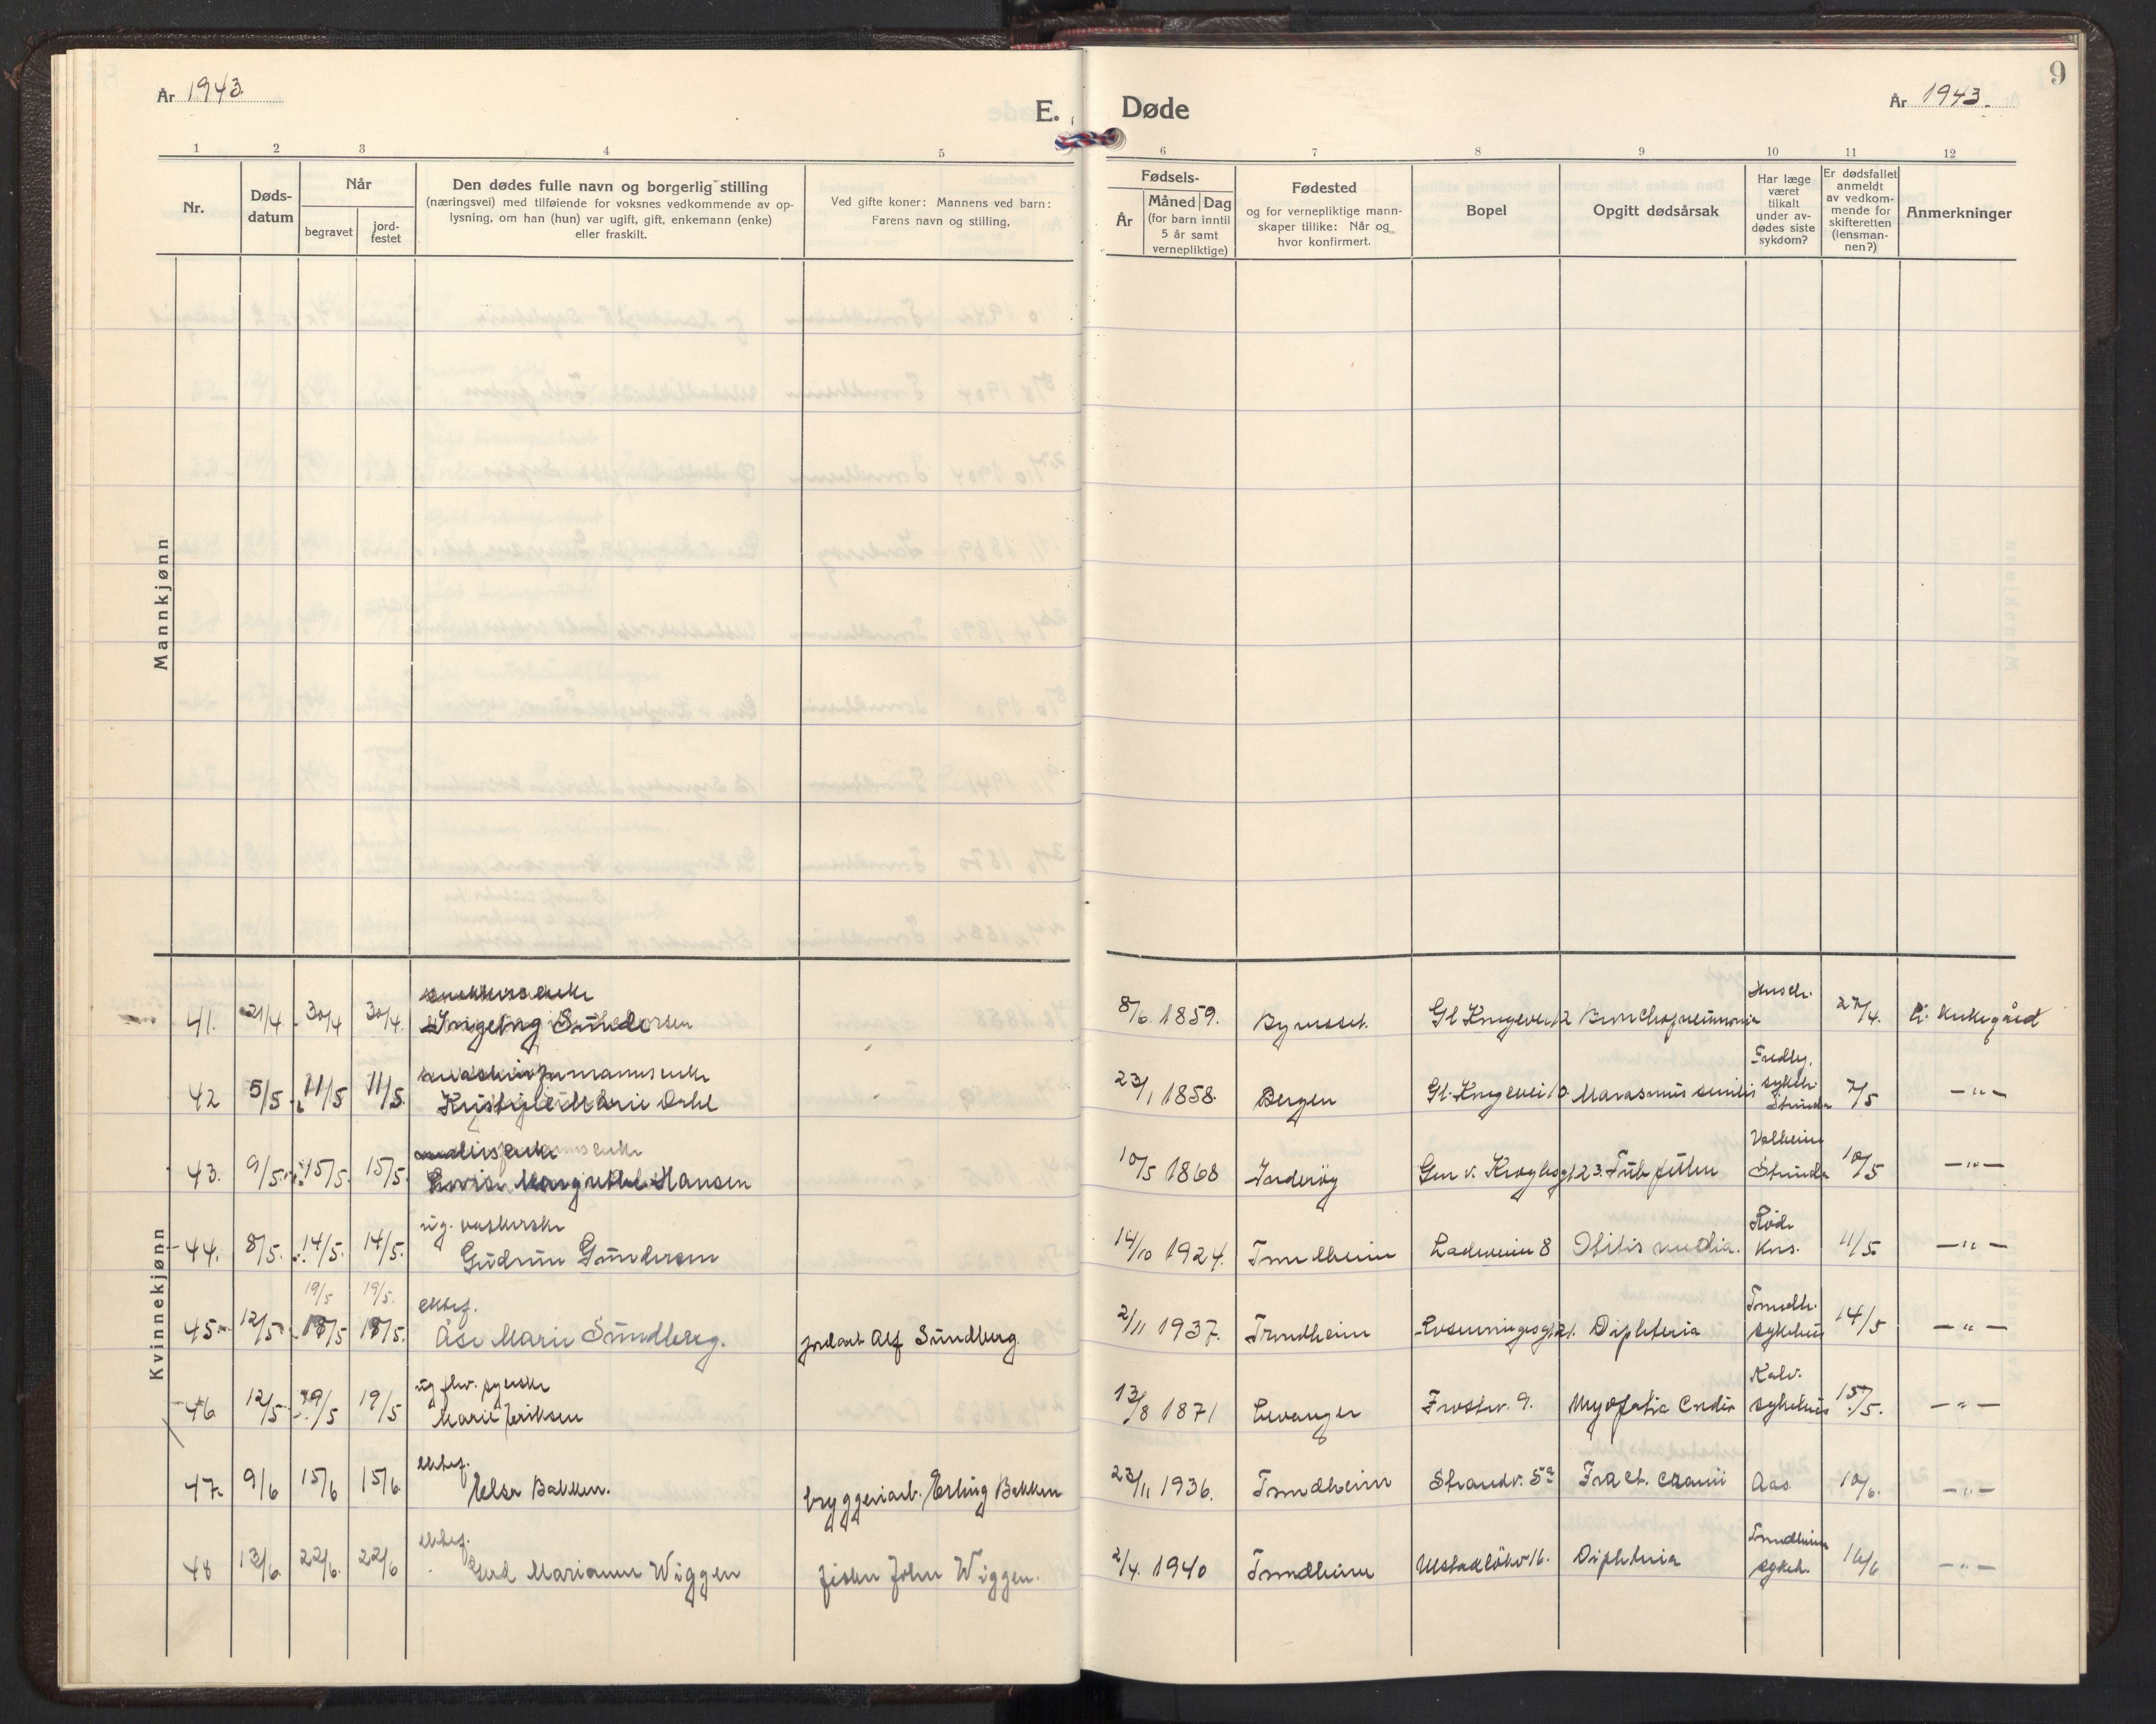 År 1943.
E. Døde
År 1943.
9
1 2 3 4 5 6 7 8 9 10 11 12
Nr.
Døds-
datum
Når
begravet
jord-
festet
Den dødes fulle navn og borgerlig stilling
(næringsvei) med tilføiende for voksnes vedkommende av op-
lysning, om han (hun) var ugift, gift, enkemann (enke)
eller fraskilt.
Ved gifte koner: Mannens ved barn:
Farens navn og stilling.
Fødsels-
År
Måned Dag
(for barn inntil
5 år samt
vernepliktige)
Fødested
og for vernepliktige mann-
skaper tillike: Når og
hvor konfirmert.
Bopel
Opgitt dødsårsak
Har læge
været
tilkalt
under av-
dødes siste
sykdom?
Er dødsfallet
anmeldt
av vedkom-
mende for
skifteretten
(lensman-
nen?)
Anmerkninger
Mannkjønn
Kvinnekjønn
41. 21/4. 30/4 30/4.
8/6 1859. Bynesset. Gl Kongevei 12 Bronchopneumonia 27/4.
42 5/5 11/5 11/5 Marie Dahl
23/1 1858. Bergen Gl. Kongevei 10. Marasmus senilis 7/5 -"-
43. 9/5 15/5 15/5. Hansen
10/5 1868 Inderøy 10/5 -"-
44. 8/5. 14/5. 14/5. ug. vaskerske
Gudrun Gundersen
14/10 1924. Trondheim Ladeveien 8 Otitis media. Röde
Kors. 11/5 -"-
19/5 19/5.
45 12/5 18/5 18/5. ektef.
Åse Marie Sundberg. jordarb Alf Sundberg
2/11 1937. Trondheim Diphteria Trondh.
sykehus 14/5 -"-
46 12/5 19/5 19/5 ug fhv. syerske
Marie Eriksen
13/8 1871 Levanger Frostav. 9. Myopatia Cordis Kalv.
sykehus 15/5. -"-
47. 9/6 15/6 15/6 ektef.
Else Bakken. bryggeriarb. Erling Bakken
23/11 1936. Trondheim Strandv. 5a Fract. cranii Aas 10/6. -"-
48 13/6. 22/6. 22/6 ektef.
Gerd Marianne Wiggen fisker John Wiggen.
2/4. 1940 Trondheim 16. Diphteria Trondheim
sykeh. 16/6 -"-